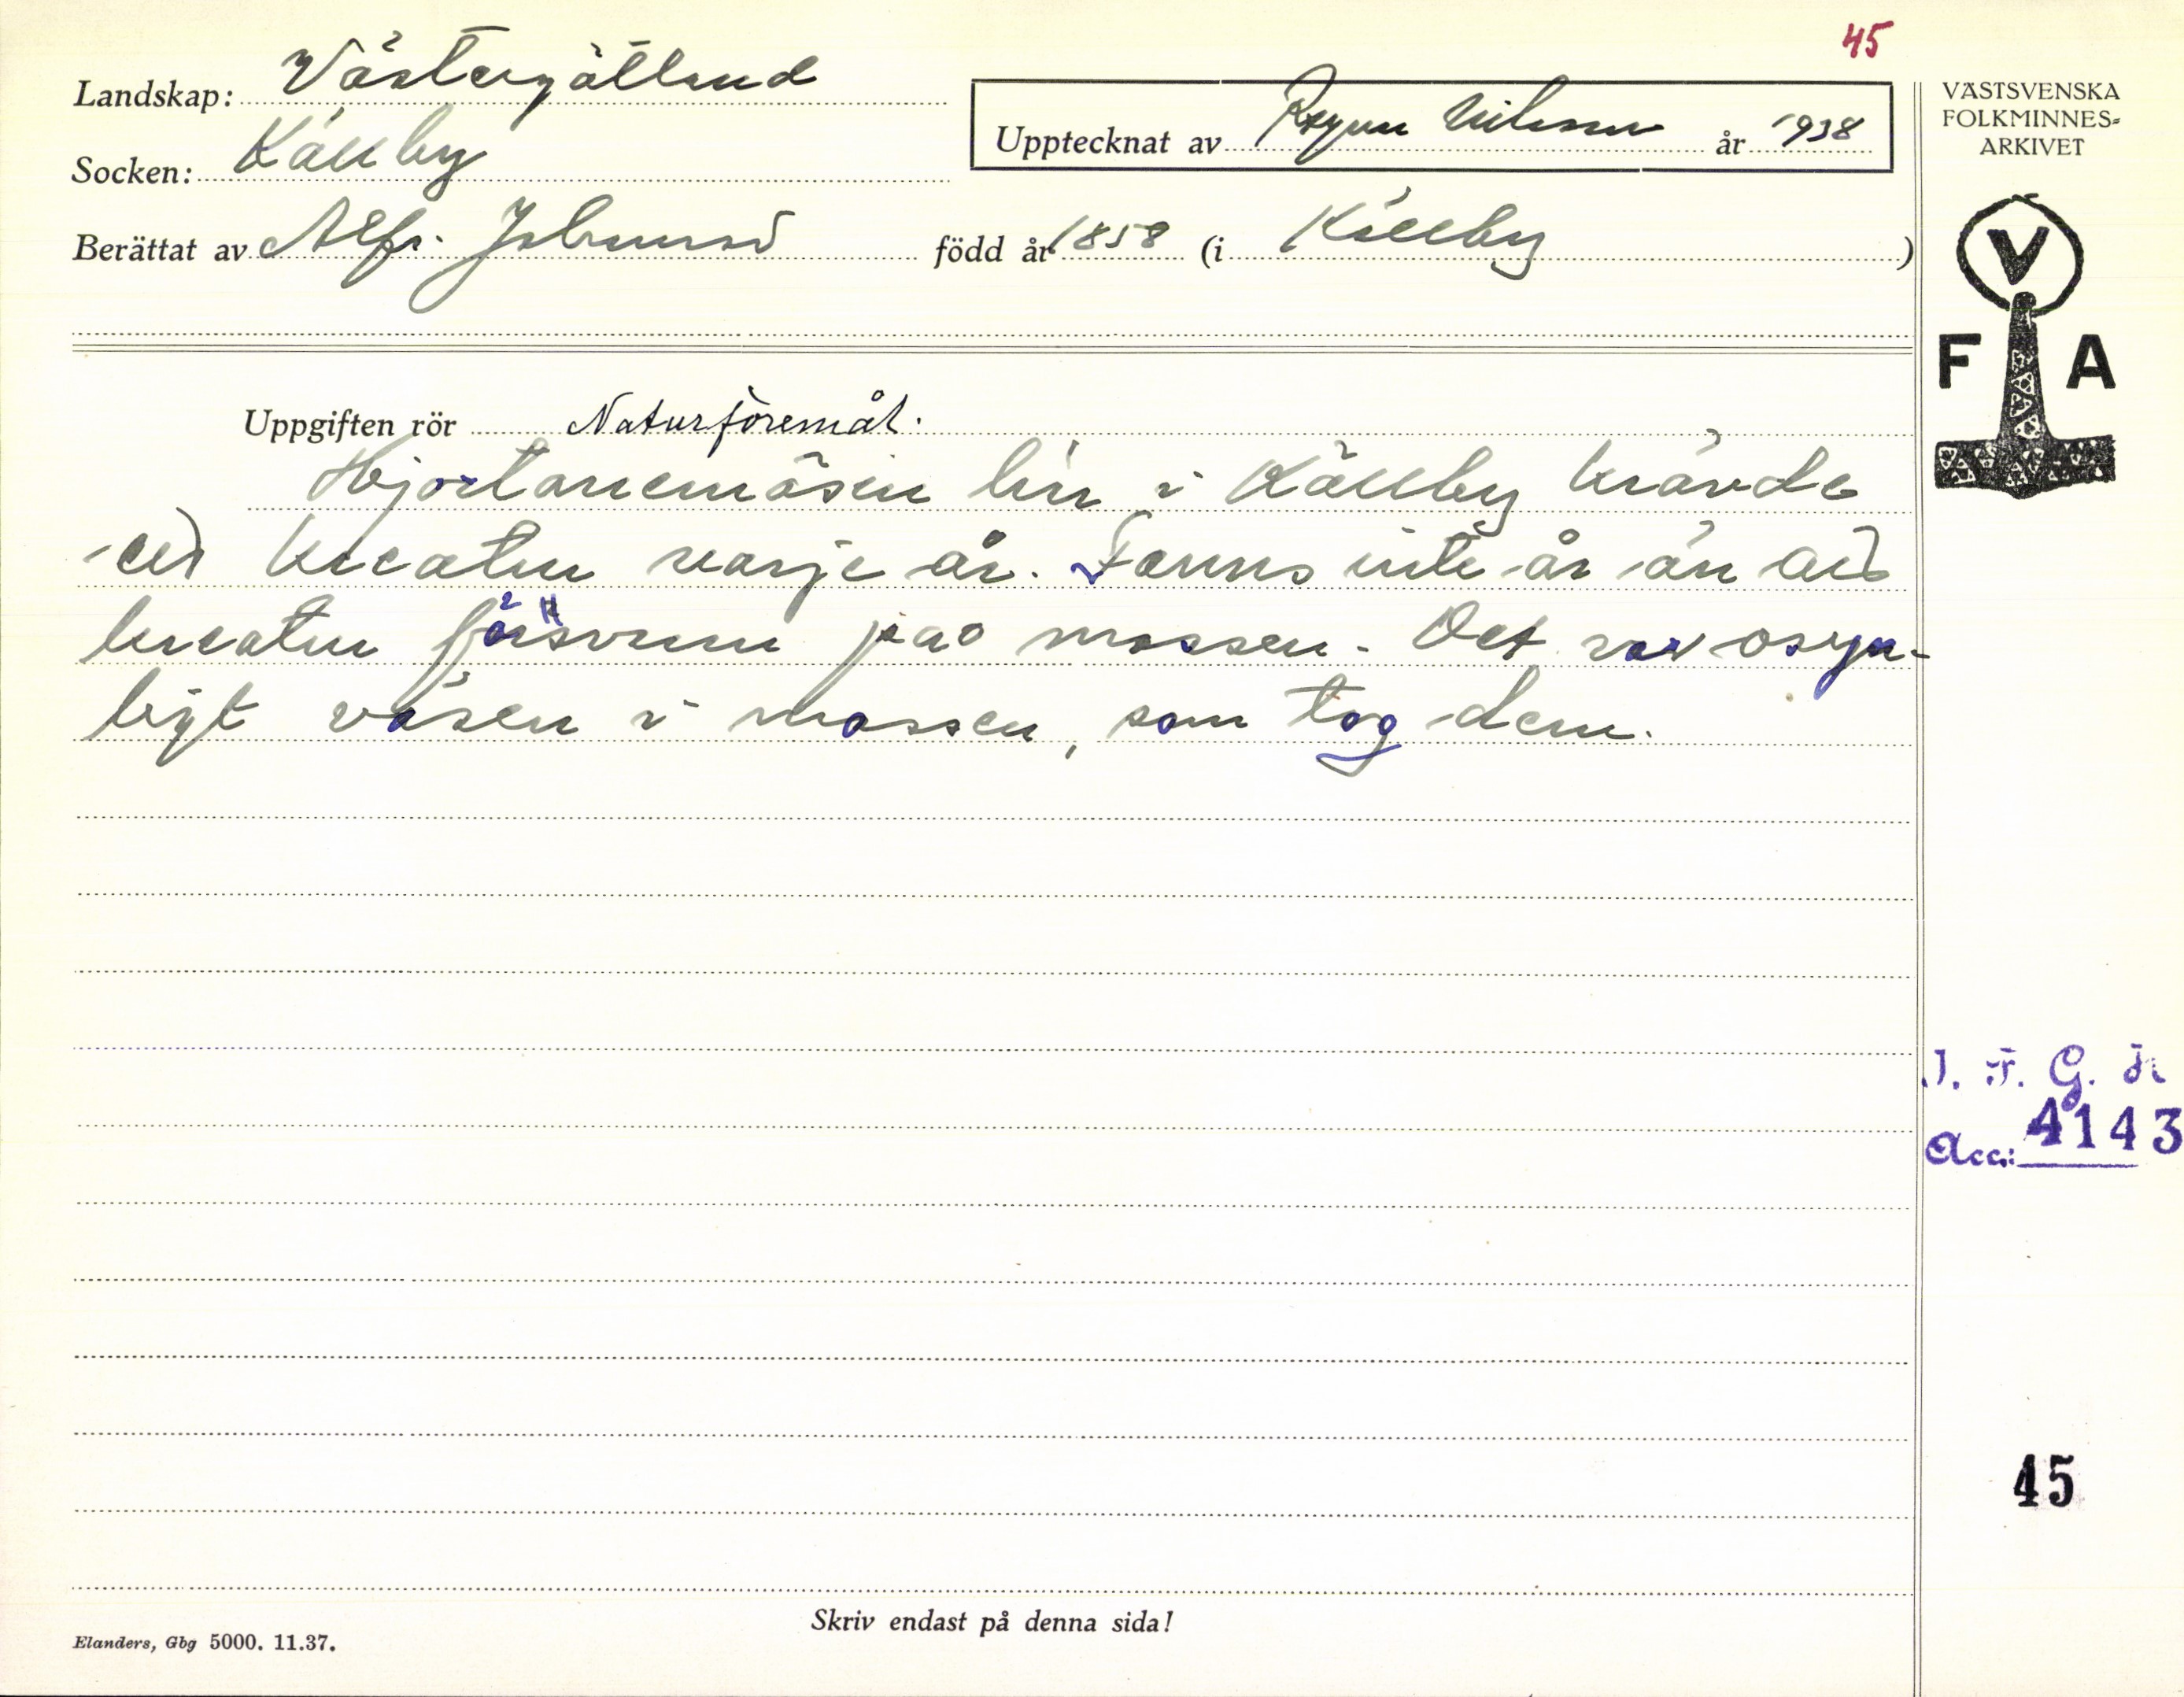 45
Landskap: Västergötland
Upptecknat av Ragnar Nilsson år 1938
VÄSTSVENSKA
FOLKMINNES-
ARKIVET
Socken: Källby
Berättat av Alfr. Johansson född år 1858 (i Källby)
V
F A
Uppgiften rör Naturföremål.
Hjortanemåsen här i Källby krävde
ett kreatur varje år. Fanns inte år än att
kreatur försvunn på mossen. Det var osyn-
ligt väsen i mossen, som tog dem.
I. F. G. H
Acc: 4143
45
Skriv endast på denna sida!
Elanders, Gbg 5000. 11.37.